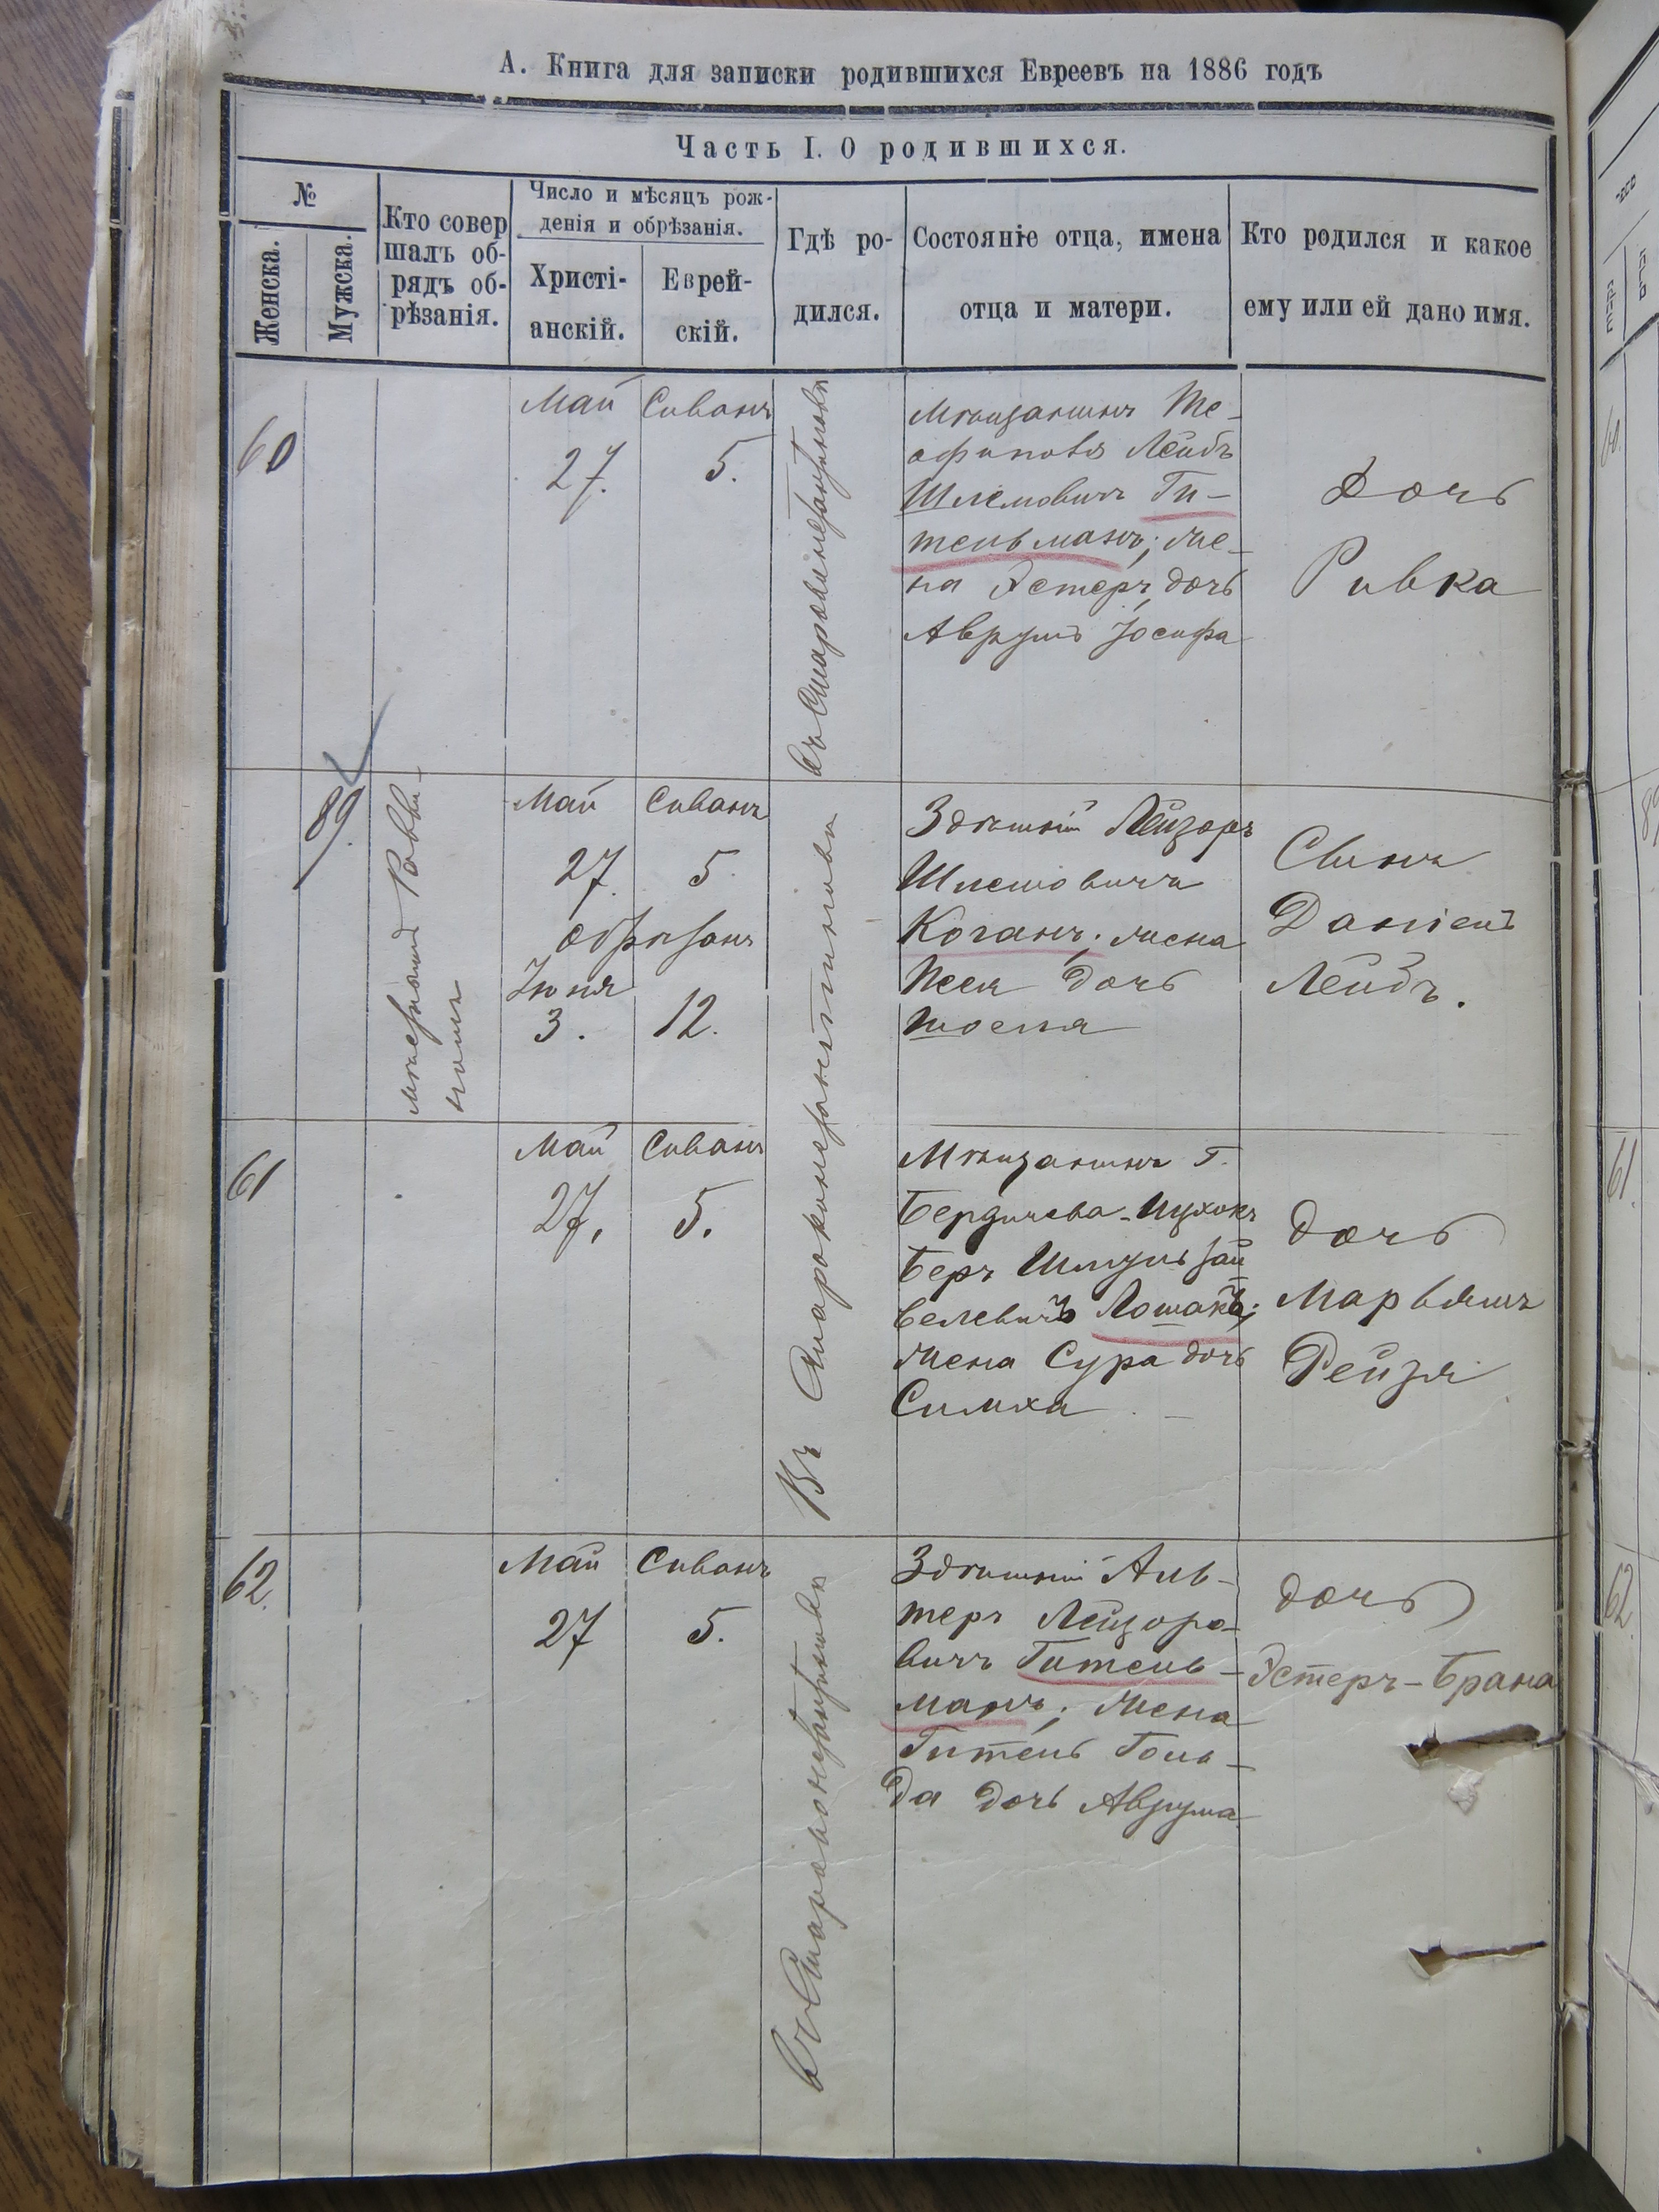 А. Книга для записки родившихся Евреевъ на 1886 годъ
Часть I. О родившихся.
№
Женска.
Мужска.
Кто совер
шалъ об-
рядъ об-
рѣзанія.
Число и мѣсяцъ рож-
денія и обрѣзанія.
Христі-
анскій.
Еврей-
скій.
Гдѣ ро-
дился.
Состояніе отца, имена
отца и матери.
Кто родился и какое
ему или ей дано имя.
60
Май
27.
Сиванъ
5.
въ Староконстантиновѣ
Мѣщанинъ Те-
офиполя Лейбъ
Шлемовичъ Ги-
тельманъ; же-
на Эстеръ дочь
Аврумъ Іосифа
Дочь
Ривка
89
Равви-
номъ
Май
27.
Сиванъ
5.
обрѣзанъ
Іюня
3.
12.
Въ Староконстантиновѣ
Здѣшній Лейзоръ
Шлемовичъ
Коганъ; жена
дочь
Сынъ
Даніель
Лейбъ.
61
Май
27.
Сиванъ
5.
Мѣщанинъ г.
Бердичева Ицхокъ
Беръ Шмуль Зай
велевичъ Лошакъ;
жена Сура дочь
Симха
дочь
Марьямъ
Рейзя
62.
Май
27
Сиванъ
5.
въ Староконстантиновѣ
Здѣшній Аль-
теръ Лейзоро-
вичъ Гитель-
манъ; жена
Гитель Голь-
да дочь Аврума
дочь
Эстеръ-Брана
61.
62